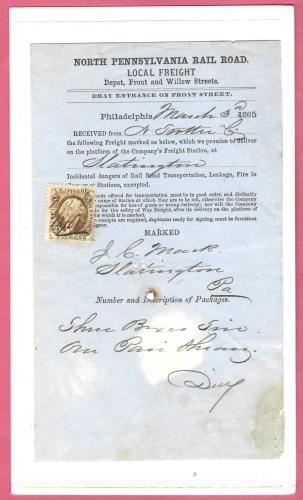 NORTH PENNSYLVANIA RAIL ROAD.
LOCAL FREIGHT
Depot, Front and Willow Streets.
DRAY ENTRANCE ON FRONT STREET.
Philadelphia March 3d 1865
RECEIVED from
the following Freight marked as below, which we promise to deliver
on the platform of the Company's Freight Station, at
Slatington
Incidental dangers of Rail Road Transportation, Leakage, Fire in
or at Stations, excepted.
goods offered for transportation must be in good order, and distinctly
name of Station at which they are to be left, otherwise the Company
responsible for loss of goods or wrong delivery; nor will the Company
for the safety of Way Freight, after its delivery on the platform of
which it is marked.
receipts are required, duplicates ready for signing, must be furnished
MARKED
J. C. Mack
Slatington
Pa
Number and Description of Packages.
Three Boxes Tin
One Pair Shears